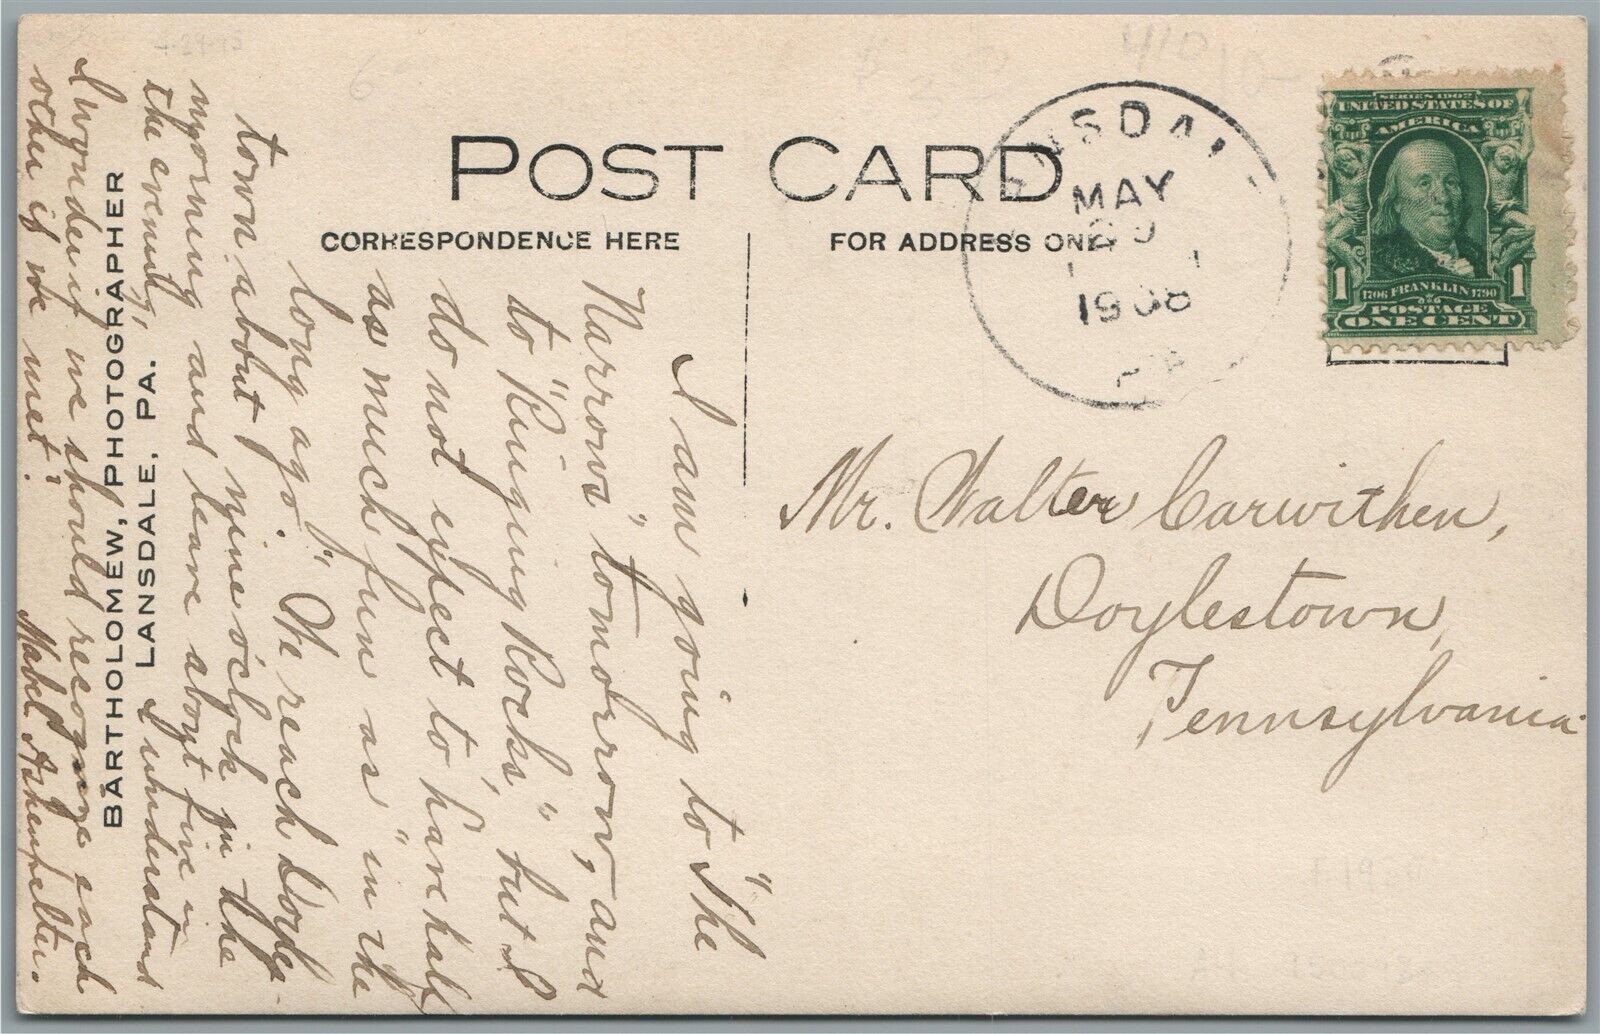 POST CARD
CORRESPONDENCE HERE
FOR ADDRESS ONLY
MAY
1908
PA
SERIES 1902
UNITED STATES OF
AMERICA
1706 FRANKLIN 1790
POSTAGE
1 1
ONE CENT
Mr. Walter Carwithen,
Doylestown,
Pennsylvania.
I am going to "The
Narrows" tomorrow, and
to "Ringing Rocks," but I
do not expect to have half
as much fun as "in the
long ago." We reach Doyles-
town about nine o'clock in the
morning and leave about five in
the evening, I understand
I wonder if we should recognize each
other if we met?
Mabel Ashenfelter.
BARTHOLOMEW, PHOTOGRAPHER
LANSDALE, PA.